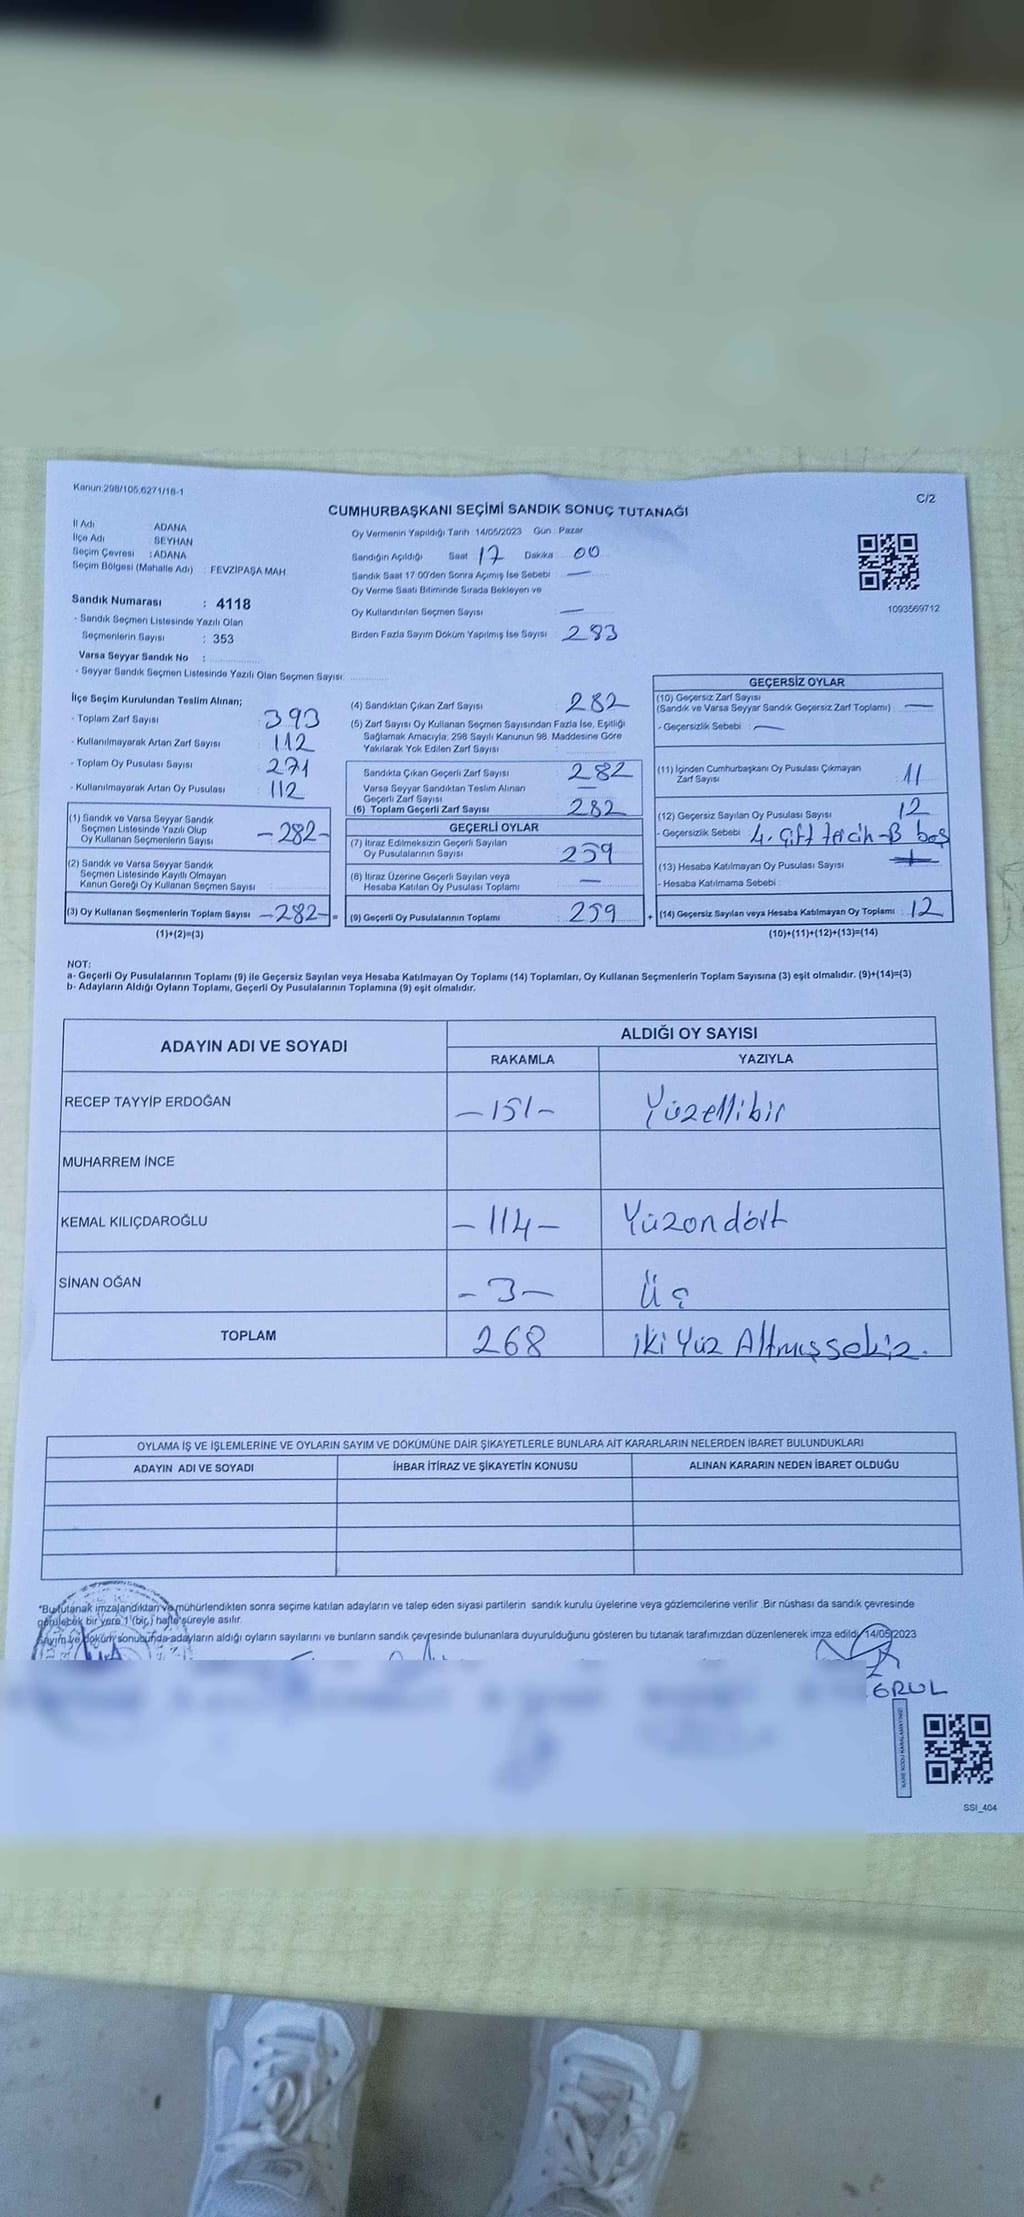 Kanun:298/105,6271/16-1
C/2
CUMHURBAŞKANI SEÇİMİ SANDIK SONUÇ TUTANAĞI
İl Adı ADANA
İlçe Adı SEYHAN
Seçim Çevresi : ADANA
Seçim Bölgesi (Mahalle Adı) : FEVZİPAŞA MAH.
Sandık Numarası : 4118
- Sandık Seçmen Listesinde Yazılı Olan
Seçmenlerin Sayısı : 353
Varsa Seyyar Sandık No :
- Seyyar Sandık Seçmen Listesinde Yazılı Olan Seçmen Sayısı:
Oy Vermenin Yapıldığı Tarih : 14/05/2023 Gün : Pazar
Sandığın Açıldığı Saat 17 Dakika 00
Sandık Saat 17:00'den Sonra Açımış İse Sebebi : —
Oy Verme Saati Bitiminde Sırada Bekleyen ve
Oy Kullandırılan Seçmen Sayısı —
Birden Fazla Sayım Döküm Yapılmış İse Sayısı 283
1093569712
İlçe Seçim Kurulundan Teslim Alınan;
- Toplam Zarf Sayısı : 393
- Kullanılmayarak Artan Zarf Sayısı : 112
- Toplam Oy Pusulası Sayısı : 271
- Kullanılmayarak Artan Oy Pusulası : 112
(1) Sandık ve Varsa Seyyar Sandık
Seçmen Listesinde Yazılı Olup
Oy Kullanan Seçmenlerin Sayısı -282-
(2) Sandık ve Varsa Seyyar Sandık
Seçmen Listesinde Kayıtlı Olmayan
Kanun Gereği Oy Kullanan Seçmen Sayısı
(3) Oy Kullanan Seçmenlerin Toplam Sayısı -282- =
(1)+(2)=(3)
(4) Sandıktan Çıkan Zarf Sayısı : 282
(5) Zarf Sayısı Oy Kullanan Seçmen Sayısından Fazla İse, Eşitliği
Sağlamak Amacıyla; 298 Sayılı Kanunun 98. Maddesine Göre
Yakılarak Yok Edilen Zarf Sayısı :
Sandıkta Çıkan Geçerli Zarf Sayısı 282
Varsa Seyyar Sandıktan Teslim Alınan
Geçerli Zarf Sayısı —
(6) Toplam Geçerli Zarf Sayısı 282
GEÇERLİ OYLAR
(7) İtiraz Edilmeksizin Geçerli Sayılan
Oy Pusulalarının Sayısı 259
(8) İtiraz Üzerine Geçerli Sayılan veya
Hesaba Katılan Oy Pusulası Toplamı —
(9) Geçerli Oy Pusulalarının Toplamı 259 +
GEÇERSİZ OYLAR
(10) Geçersiz Zarf Sayısı
(Sandık ve Varsa Seyyar Sandık Geçersiz Zarf Toplamı) : —
- Geçersizlik Sebebi : —
(11) İçinden Cumhurbaşkanı Oy Pusulası Çıkmayan
Zarf Sayısı 11
(12) Geçersiz Sayılan Oy Pusulası Sayısı 12
- Geçersizlik Sebebi : 4. çift tercih-8 boş
(13) Hesaba Katılmayan Oy Pusulası Sayısı
- Hesaba Katılmama Sebebi :
(14) Geçersiz Sayılan veya Hesaba Katılmayan Oy Toplamı : 12
(10)+(11)+(12)+(13)=(14)
NOT:
a- Geçerli Oy Pusulalarının Toplamı (9) ile Geçersiz Sayılan veya Hesaba Katılmayan Oy Toplamı (14) Toplamları, Oy Kullanan Seçmenlerin Toplam Sayısına (3) eşit olmalıdır. (9)+(14)=(3)
b- Adayların Aldığı Oyların Toplamı, Geçerli Oy Pusulalarının Toplamına (9) eşit olmalıdır.
ADAYIN ADI VE SOYADI ALDIĞI OY SAYISI
RAKAMLA YAZIYLA
RECEP TAYYİP ERDOĞAN -151- Yüzellibir
MUHARREM İNCE
KEMAL KILIÇDAROĞLU -114- Yüzondört
SİNAN OĞAN -3- Üç
TOPLAM 268 iki Yüz Altmışsekiz.
OYLAMA İŞ VE İŞLEMLERİNE VE OYLARIN SAYIM VE DÖKÜMÜNE DAİR ŞİKAYETLERLE BUNLARA AİT KARARLARIN NELERDEN İBARET BULUNDUKLARI
ADAYIN ADI VE SOYADI İHBAR İTİRAZ VE ŞİKAYETİN KONUSU ALINAN KARARIN NEDEN İBARET OLDUĞU
*Bu tutanak imzalandıktan ve mühürlendikten sonra seçime katılan adayların ve talep eden siyasi partilerin sandık kurulu üyelerine veya gözlemcilerine verilir. Bir nüshası da sandık çevresinde
görülebilecek bir yere 1 (bir) hafta süreyle asılır.
Sayım ve döküm sonucunda adayların aldığı oyların sayılarını ve bunların sandık çevresinde bulunanlara duyurulduğunu gösteren bu tutanak tarafımızdan düzenlenerek imza edildi. 14/05/2023
SSI_404